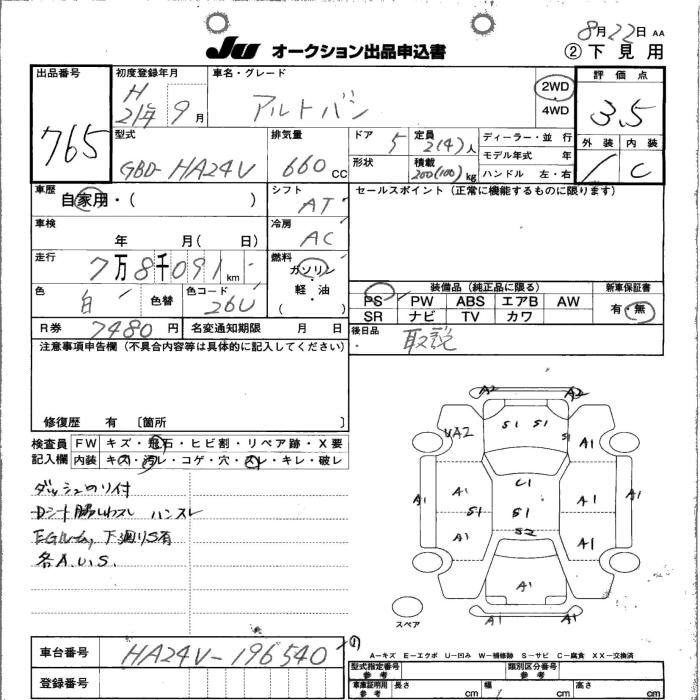 8月22日 AA
JU オークション出品申込書 ②下見用
出品番号 765
初度登録年月 H21年9月
車名・グレード アルトバン
2WD
4WD
評価点 3.5
外装 内装 C
型式 GBD-HA24V
排気量 660cc
ドア 5
定員 2(4)人
ディーラー・並行
モデル年式 年
形状
積載 200(100)kg
ハンドル 左・右
車歴 自家用・( )
シフト AT
セールスポイント(正常に機能するものに限ります)
車検 年 月( 日)
冷房 AC
走行 7万8千091km
燃料 ガソリン・軽・油( )
色 白 色替 色コード 26U
装備品(純正品に限る) 新車保証書
PS PW ABS エアB AW 有・無
SR ナビ TV カワ
R券 7480円 名変通知期限 月 日
後日品 取説
注意事項申告欄(不具合内容等は具体的に記入してください)
修復歴 有 〔箇所 〕
検査員 FW キズ・飛石・ヒビ割・リペア跡・X要
記入欄 内装 キズ・汚レ・コゲ・穴・スレ・キレ・破レ
ダッシュのり付
Dシート ハンスレ
EGルーム, 下廻りS有
各A.U.S.
A2 A2
UA2 S1 S1 S1 A1
C1
A1 A1 S1 S1 A1 A1
A1 S2 A1
A1
A1 A1
スペア
A-キズ E-エクボ U-凹み W-補修跡 S-サビ C-腐食 XX-交換済
車台番号 HA24V-196540
①
登録番号
型式指定番号 参考
類別区分番号 参考
車庫証明用 参考 長さ cm 幅 cm 高さ cm